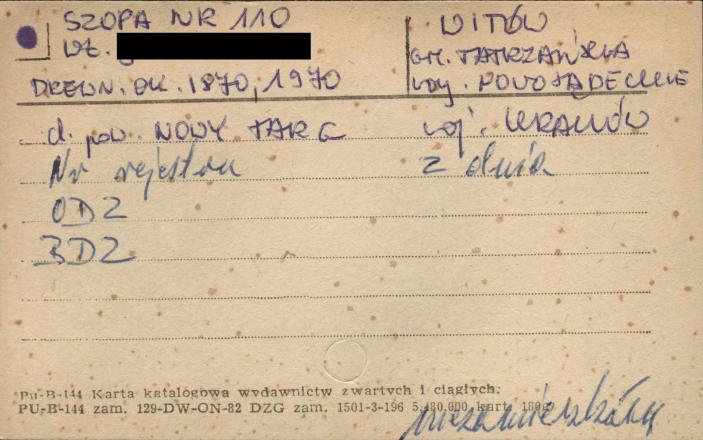 SZOPA NR 110
WŁ.
DREWN. OK. 1870, 1970
WITÓW
GM. TATRZAŃSKA
WOJ. NOWOSĄDECKIE
d. pow. NOWY TARG
woj. KRAKÓW
Nr rejestru
z dnia
ODZ
BDZ
PU-B-144 Karta katalogowa wydawnictw zwartych i ciągłych.
PU-B-144 zam. 129-DW-ON-82 DZG zam. 1501-3-196 5.480.000 kart 180g
niezamieszkały